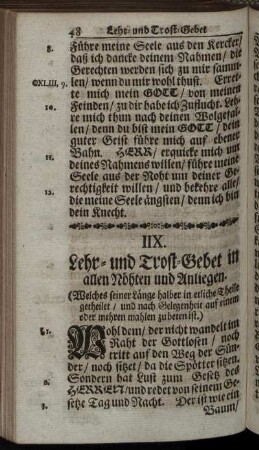 48 Lehr- und Trost-Gebet
8. Führe meine Seele aus den Kercker/
daß ich dancke deinem Nahmen/ die
Gerechten werden sich zu mir samm-
CXLIII, 9. len/ wenn du mir wohl thust. Erret-
te mich mein GOTT/ von meinen
10. Feinden/ zu dir habe ich Zuflucht. Leh-
re mich thun nach deinen Wolgefal-
len/ denn du bist mein GOTT/ dein
guter Geist führe mich auf ebener
11. Bahn. HERR/ erquicke mich um
deines Nahmens willen/ führe meine
Seele aus der Noht um deiner Ge-
12. rechtigkeit willen/ und bekehre alle/
die meine Seele ängsten/ denn ich bin
dein Knecht.
IIX.
Lehr- und Trost-Gebet in
allen Nöhten und Anliegen.
(Welches seiner Länge halber in etliche Theile
getheilet/ und nach Gelegenheit auf einem
oder mehren mahlen zu beten ist.)
1. Wohl dem/ der nicht wandelt im
Raht der Gottlosen/ noch
tritt auf den Weg der Sün-
der/ noch sitzet/ da die Spötter sitzen.
2. Sondern hat Lust zum Gesetz des
HERREN/ und redet von seinem Ge-
3. setze Tag und Nacht. Der ist wie ein
Baum/